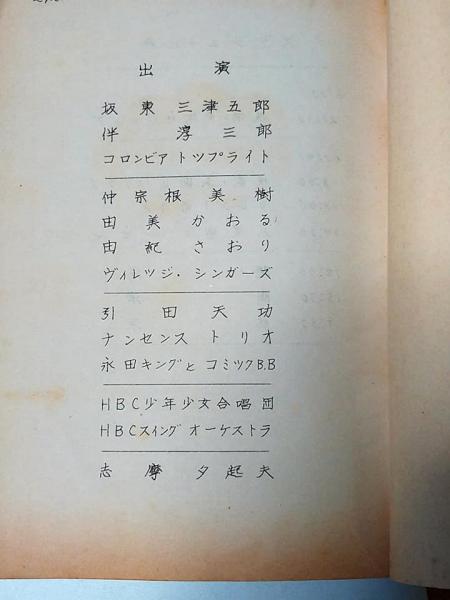 出演
坂東三津五郎
伴淳三郎
コロンビアトツプライト
仲宗根美樹
由美かおる
由紀さおり
ヴィレツジ・シンガーズ
引田天功
ナンセンストリオ
永田キングとコミツクB.B
HBC少年少女合唱団
HBCスイングオーケストラ
志摩夕起夫